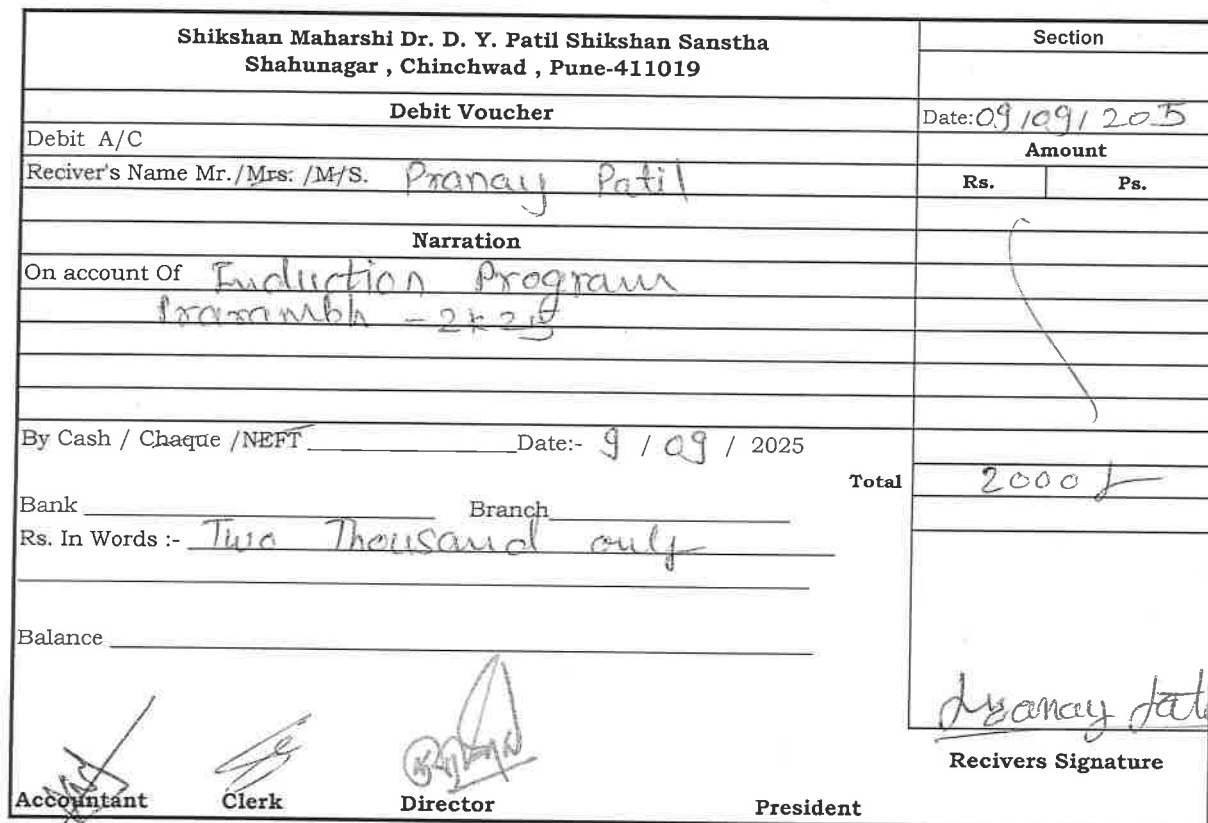 Shikshan Maharshi Dr. D. Y. Patil Shikshan Sanstha
Shahunagar , Chinchwad , Pune-411019
Section
Debit Voucher
Date:09/09/2025
Debit A/C
Amount
Reciver's Name Mr./Mrs: /M/S. Pranay Patil
Rs. Ps.
Narration
On account Of Induction Program
Prarambh - 2k25
By Cash / Chaque /NEFT Date:- 9 / 09 / 2025
Total 2000/-
Bank Branch
Rs. In Words :- Two Thousand only
Balance
Pranay Pati
Recivers Signature
Accountant Clerk Director President